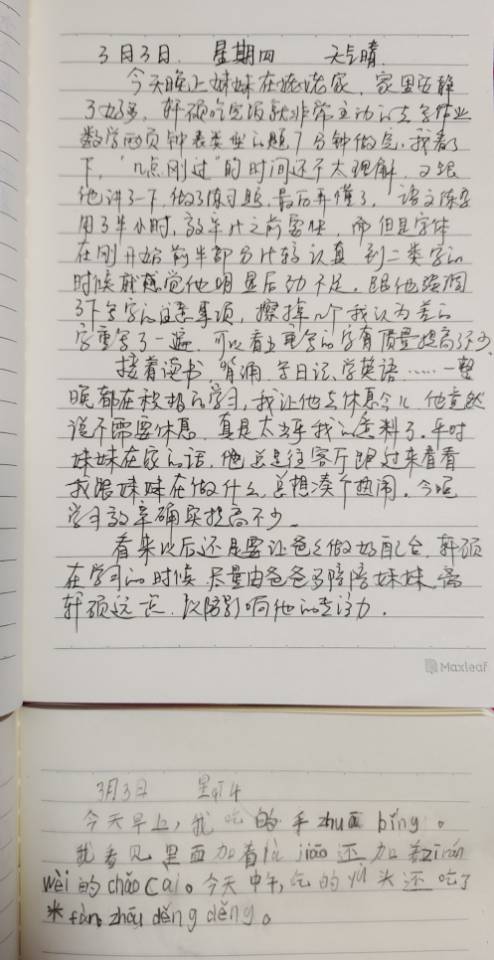 3月3日. 星期四 天气晴.
今天晚上妹妹在姥姥家, 家里安静
了好多, 轩硕吃完饭就非常主动的去写作业
数学两页钟表类型的题7分钟做完. 我看了
下, "几点刚过"的时间还不太理解, 又跟
他讲了一下, 做了练习题, 最后弄懂了, 语文
用了半小时, 效率比之前要快, 但是字体
在刚开始前半部分比较认真 到二类字的
时候就感觉他明显后劲不足, 跟他强调
了下写字的注意事项, 擦掉几个我认为差的
字重写了一遍, 可以看出重写的字有质量提高不少.
接着读书, 背诵, 写日记, 学英语……一整
晚都在积极的学习, 我让他去休息会儿 他竟然
说不需要休息, 真是太出乎我的意料了. 平时
妹妹在家的话, 他总是往客厅跑过来看看
我跟妹妹在做什么, 总想凑个热闹, 今晚
学习效率确实提高不少.
看来以后还是要让爸爸做好配合, 轩硕
在学习的时候 尽量由爸爸多陪陪妹妹, 离
轩硕远点, 以防影响他的专注力.
Maxleaf
3月3日 星期4
今天早上, 我吃的手zhuā bǐng 。
我看见里面加着là jiāo还加着zī rán
wèi的chǎo cài。今天中午, 吃的yú 头还吃了
米fàn, zhōu děng děng。